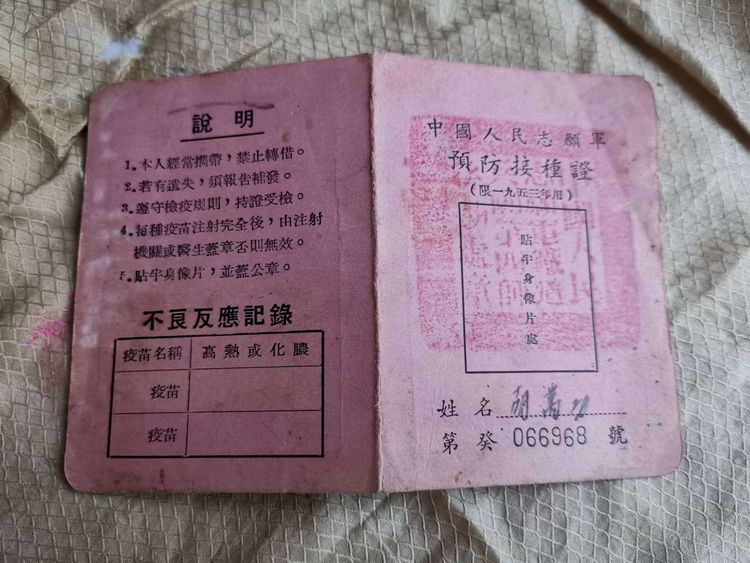 說明
1. 本人經常攜帶，禁止轉借。
2. 若有遺失，須報告補發。
3. 遵守檢疫規則，持證受檢。
4. 每種疫苗注射完全後，由注射
機關或醫生蓋章否則無效。
5. 貼半身像片，並蓋公章。
不良反應記錄
疫苗名稱 高熱或化膿
疫苗
疫苗
中國人民志願軍
預防接種證
（限一九五三年用）
貼半身像片處
姓名 胡
第癸 066968 號